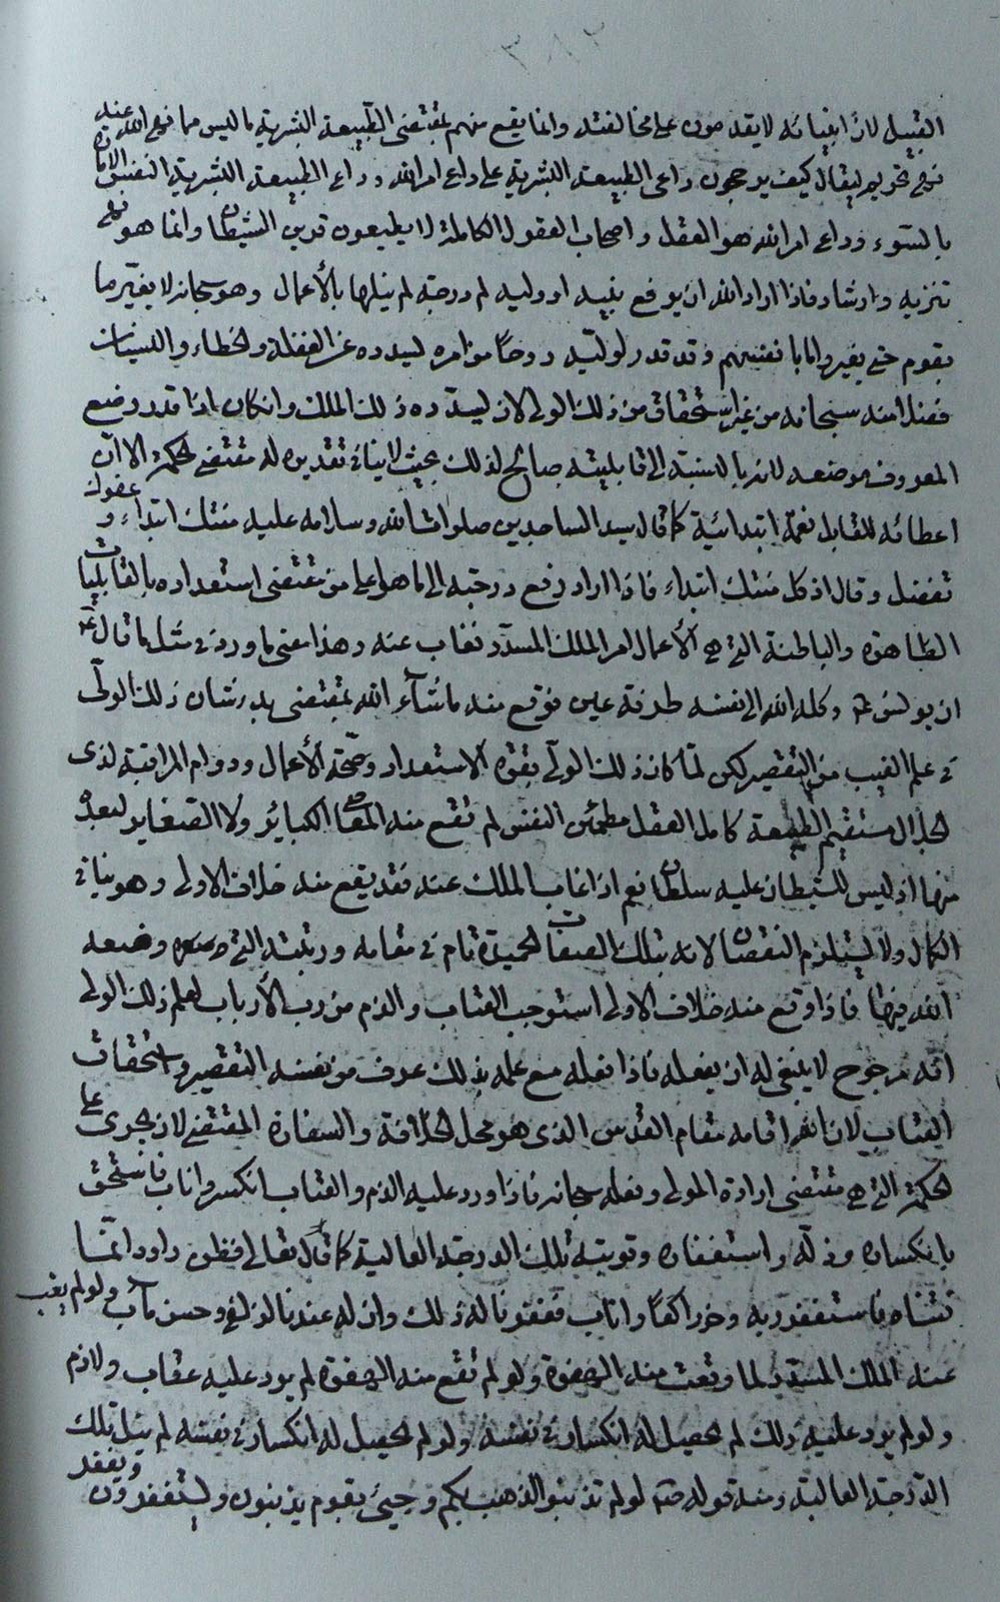 ٣٨٢
القبيل لان انبيائه لا يقدمون على مخالفته وانما يقع منهم بمقتضى الطبيعة البشرية ما ليس مما فيه لله عنه
نهى تحريم ليقال كيف يرجحون داعى الطبيعة البشرية على داعى امر الله وداعى الطبيعة البشرية النفس الامارة
بالسوء وداعى امر الله هو العقل واصحاب العقول الكاملة لا يطيعون قرين الشيطان وانما هو نهى
تنزيه وارشاد فاذا اراد الله ان يرفع نبيه او وليه لم درجة لم ينلها بالأعمال وهو سبحانه لا يغيّر ما
بقوم حتى يغيروا ما بانفسهم وقد قدر لوليّه روحًا من امره ليسدده عن الغفلة والخطاء والنسيان
فضلا منه سبحانه من غير استحقاق من ذلك الولى لان يسدّده ذلك الملك وانكان اذا قدر وضع
المعروف موضعه لانه بالنسبة الى قابليته صالح لذلك بحيث لا ينافى تقديره له مقتضى الحكمة الا ان
اعطائه للقابل نعمة ابتدائية كما قال سيد الساجدين صلوات الله وسلامه عليه منتك ابتداء وعفوك
تفضل وقال اذ كل منتك ابتداء فاذا اراد رفع درجته الى ما هو اعلى من مقتضى استعداده بالقابليات
الظاهرة والباطنة التى هى الأعمال امر الملك المسدّد فغاب عنه وهذا معنى ما ورد فى مثل ما قال ع
ان يونس ع وكله الله الى نفسه طرفة عين فوقع منه ما شآء الله بمقتضى بشان ذلك الولىّ
فى علم الغيب من التقصير لكن لمّا كان ذلك الولى بقوة الاستعداد وصحّة الأعمال ودوام المراقبة لذى
الجلال مستقيم الطبيعة كامل العقل مطمئن النفس لم تقع منه المعاصى الكبائر ولا الصغاير لبعده
منها اذ ليس للشيطان عليه سلطان نعم اذا غاب الملك عنه فقد يقع منه خلاف الاولى وهو ينافى
الكمال ولا يستلزم النقصان لانه بتلك الصفات الحميدة تام فى مقامه ورتبته التى وضعه
الله فيها فاذا وقع منه خلاف الاولى استوجب العتاب والذم من رب الأرباب لعلم ذلك الولى
انّه مرجوح لا ينبغى له ان يفعله فاذا فعله مع علمه بذلك عرف من نفسه التقصير واستحقاق
العتاب لان الله اقامه مقام القدس الذى هو محل الخلافة والسفارة المقتضى لان يجرى على
الحكمة التى هى مقتضى ارادة المولى وفعله سبحانه فاذا ورد عليه الذم والعتاب انكسر واناب فاستحق
بانكساره وذلّه واستغفاره وتوبته تلك الدرجة العالية كما قال تعالى فظن داود انمّا
فتناه فاستغفر ربه وخر راكعًا واناب فغفرنا له ذلك وان له عندنا لزلفى وحسن مآب ولو لم يغب
عنه الملك المسدد لما وقعت منه الهفوة ولو لم تقع منه الهفوة لم يرد عليه عقاب ولا ذم
ولو لم يرد عليه ذلك لم يحصل له انكسار فى نفسه ولو لم يحصل له انكسار فى نفسه لم ينل تلك
الدرجة العالية ومنه قوله ص لو لم تذنبوا لذهب بكم وجىئ بقوم يذنبون ويستغفرون ويغفر